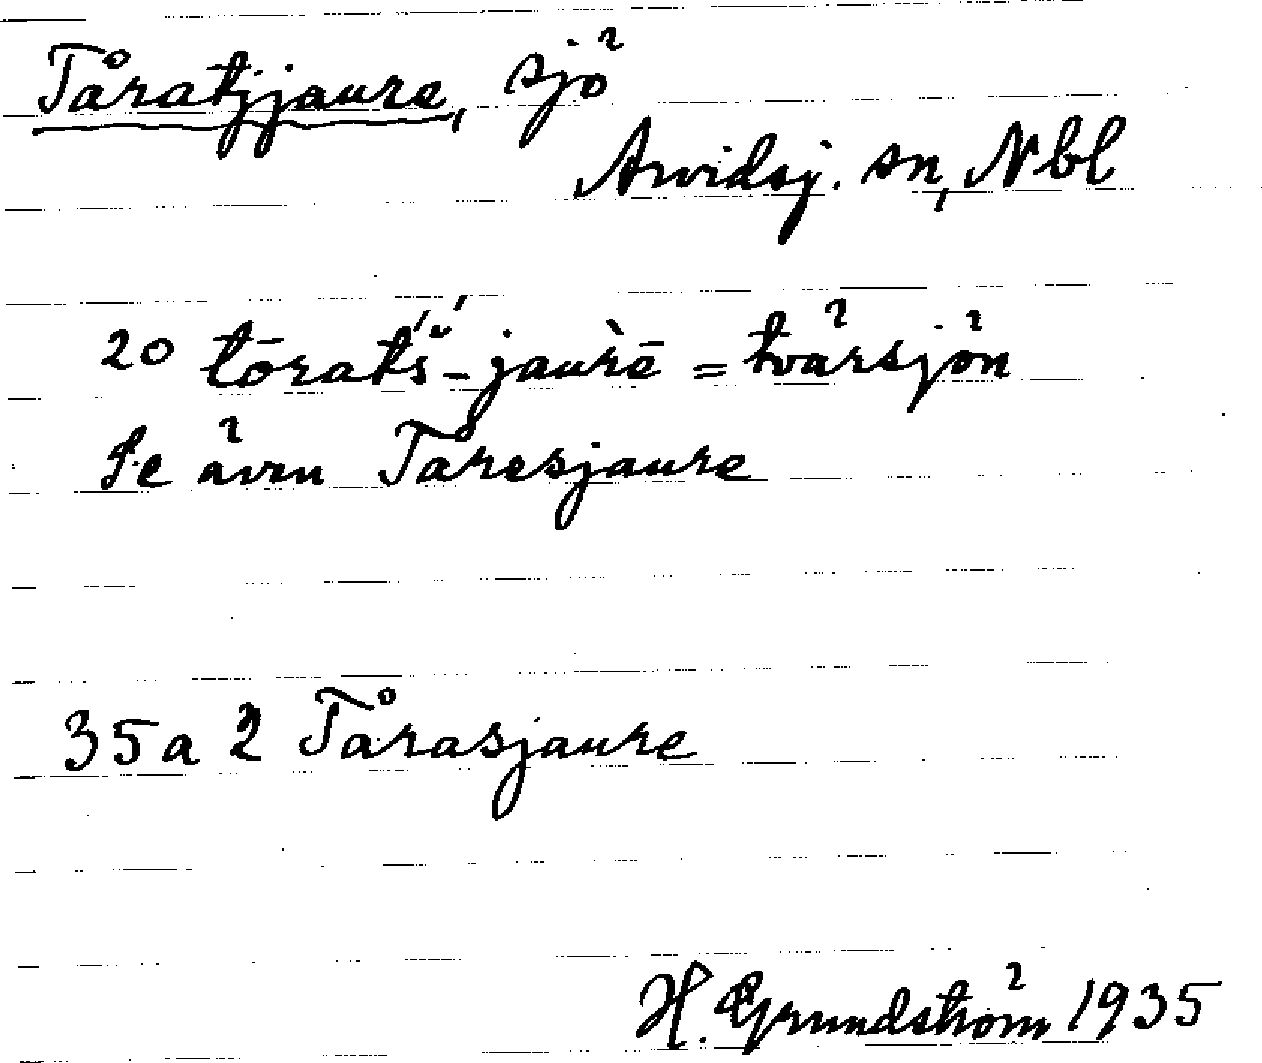 Tåratjjaure, sjö
Arvidsj. sn, Nbl
20 tōrat́š́-jaùrē = tvärsjön
Se även Tåresjaure
35a 2 Tårasjaure
H. Grundström 1935